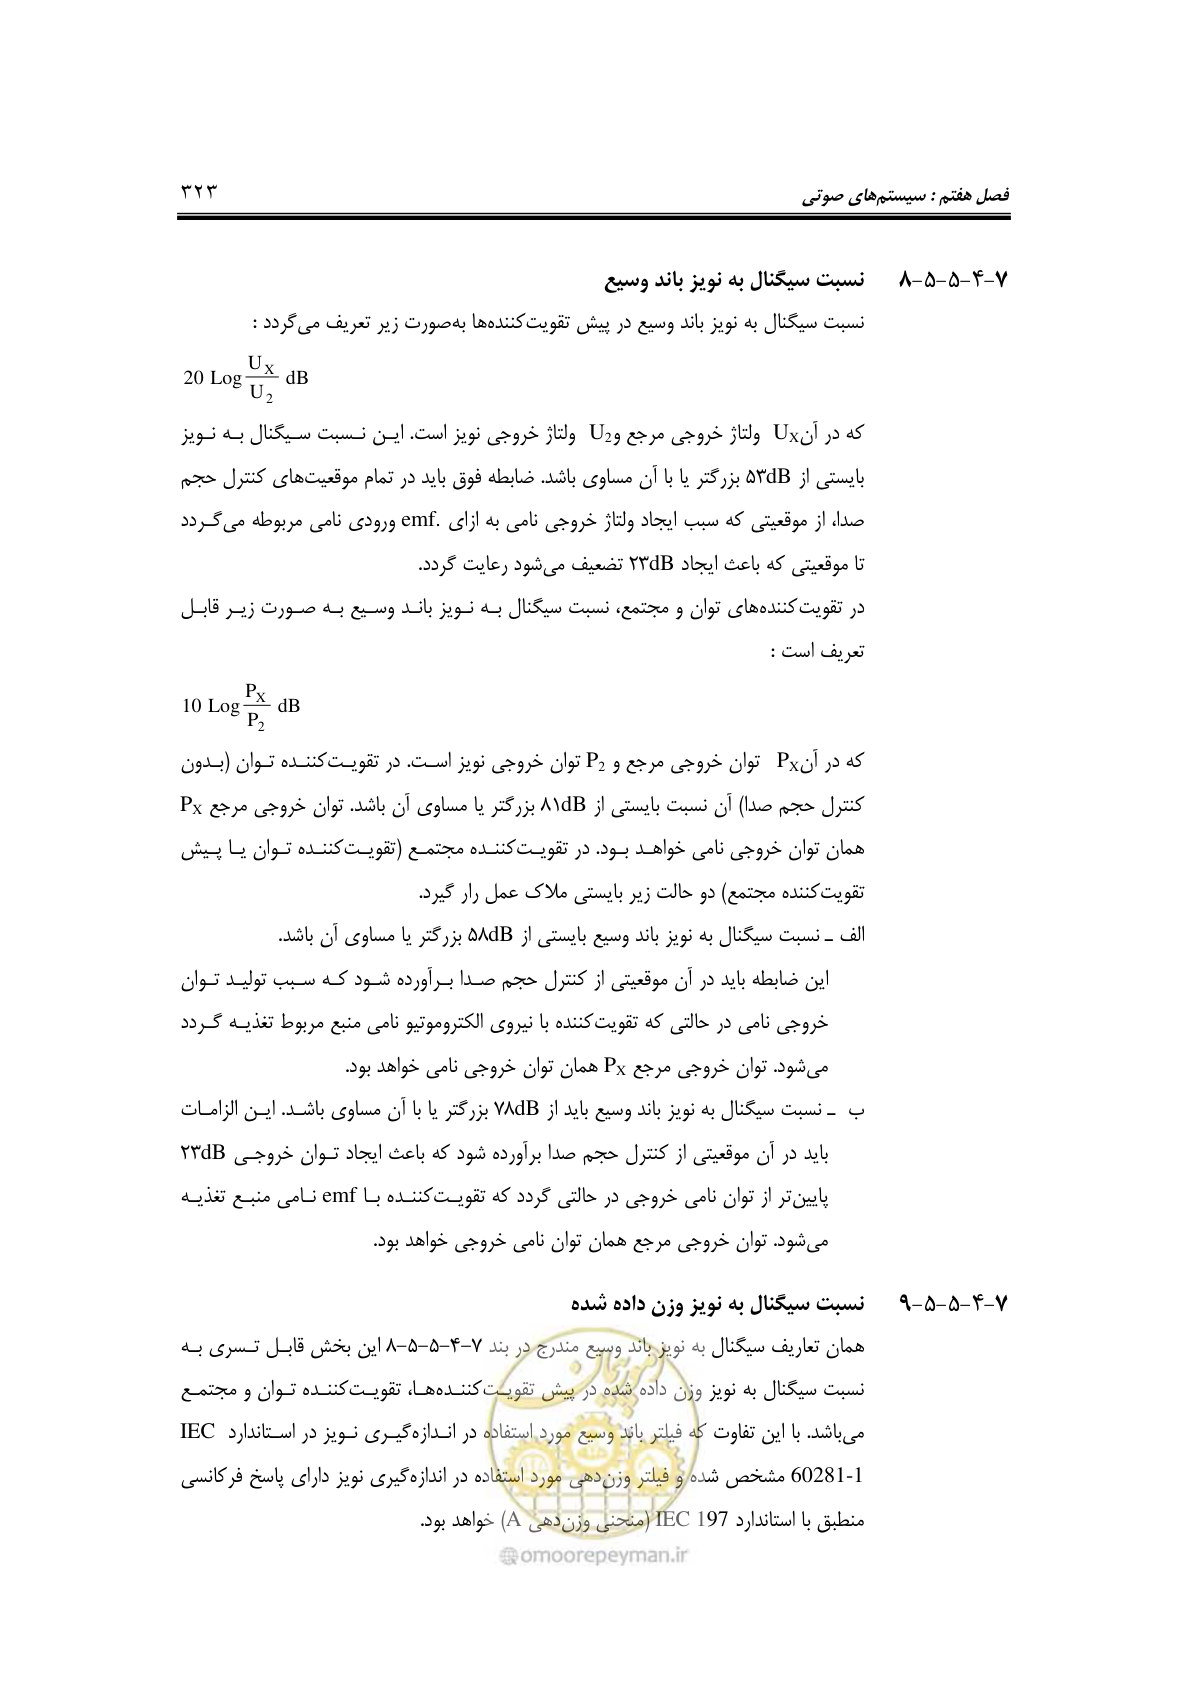 فصل هفتم : سیستم‌های صوتی ۳۲۳
۷-۴-۵-۵-۸ نسبت سیگنال به نویز باند وسیع
نسبت سیگنال به نویز باند وسیع در پیش تقویت‌کننده‌ها به‌صورت زیر تعریف می‌گردد :
20 Log U_X/U_2 dB
که در آن U_X ولتاژ خروجی مرجع و U_2 ولتاژ خروجی نویز است. این نسبت سیگنال به نویز
بایستی از ۵۳dB بزرگتر یا با آن مساوی باشد. ضابطه فوق باید در تمام موقعیت‌های کنترل حجم
صدا، از موقعیتی که سبب ایجاد ولتاژ خروجی نامی به ازای .emf ورودی نامی مربوطه می‌گردد
تا موقعیتی که باعث ایجاد ۲۳dB تضعیف می‌شود رعایت گردد.
در تقویت‌کننده‌های توان و مجتمع، نسبت سیگنال به نویز باند وسیع به صورت زیر قابل
تعریف است :
10 Log P_X/P_2 dB
که در آن P_X توان خروجی مرجع و P_2 توان خروجی نویز است. در تقویت‌کننده توان (بدون
کنترل حجم صدا) آن نسبت بایستی از ۸۱dB بزرگتر یا مساوی آن باشد. توان خروجی مرجع P_X
همان توان خروجی نامی خواهد بود. در تقویت‌کننده مجتمع (تقویت‌کننده توان یا پیش
تقویت‌کننده مجتمع) دو حالت زیر بایستی ملاک عمل رار گیرد.
الف ـ نسبت سیگنال به نویز باند وسیع بایستی از ۵۸dB بزرگتر یا مساوی آن باشد.
این ضابطه باید در آن موقعیتی از کنترل حجم صدا برآورده شود که سبب تولید توان
خروجی نامی در حالتی که تقویت‌کننده با نیروی الکتروموتیو نامی منبع مربوط تغذیه گردد
می‌شود. توان خروجی مرجع P_X همان توان خروجی نامی خواهد بود.
ب ـ نسبت سیگنال به نویز باند وسیع باید از ۷۸dB بزرگتر یا با آن مساوی باشد. این الزامات
باید در آن موقعیتی از کنترل حجم صدا برآورده شود که باعث ایجاد توان خروجی ۲۳dB
پایین‌تر از توان نامی خروجی در حالتی گردد که تقویت‌کننده با emf نامی منبع تغذیه
می‌شود. توان خروجی مرجع همان توان نامی خروجی خواهد بود.
۷-۴-۵-۵-۹ نسبت سیگنال به نویز وزن داده شده
همان تعاریف سیگنال به نویز باند وسیع مندرج در بند ۷-۴-۵-۵-۸ این بخش قابل تسری به
نسبت سیگنال به نویز وزن داده شده در پیش تقویت‌کننده‌ها، تقویت‌کننده توان و مجتمع
می‌باشد. با این تفاوت که فیلتر باند وسیع مورد استفاده در اندازه‌گیری نویز در استاندارد IEC
60281-1 مشخص شده و فیلتر وزن‌دهی مورد استفاده در اندازه‌گیری نویز دارای پاسخ فرکانسی
منطبق با استاندارد IEC 197 (منحنی وزن‌دهی A) خواهد بود.
امور پیمان
@omoorepeyman.ir